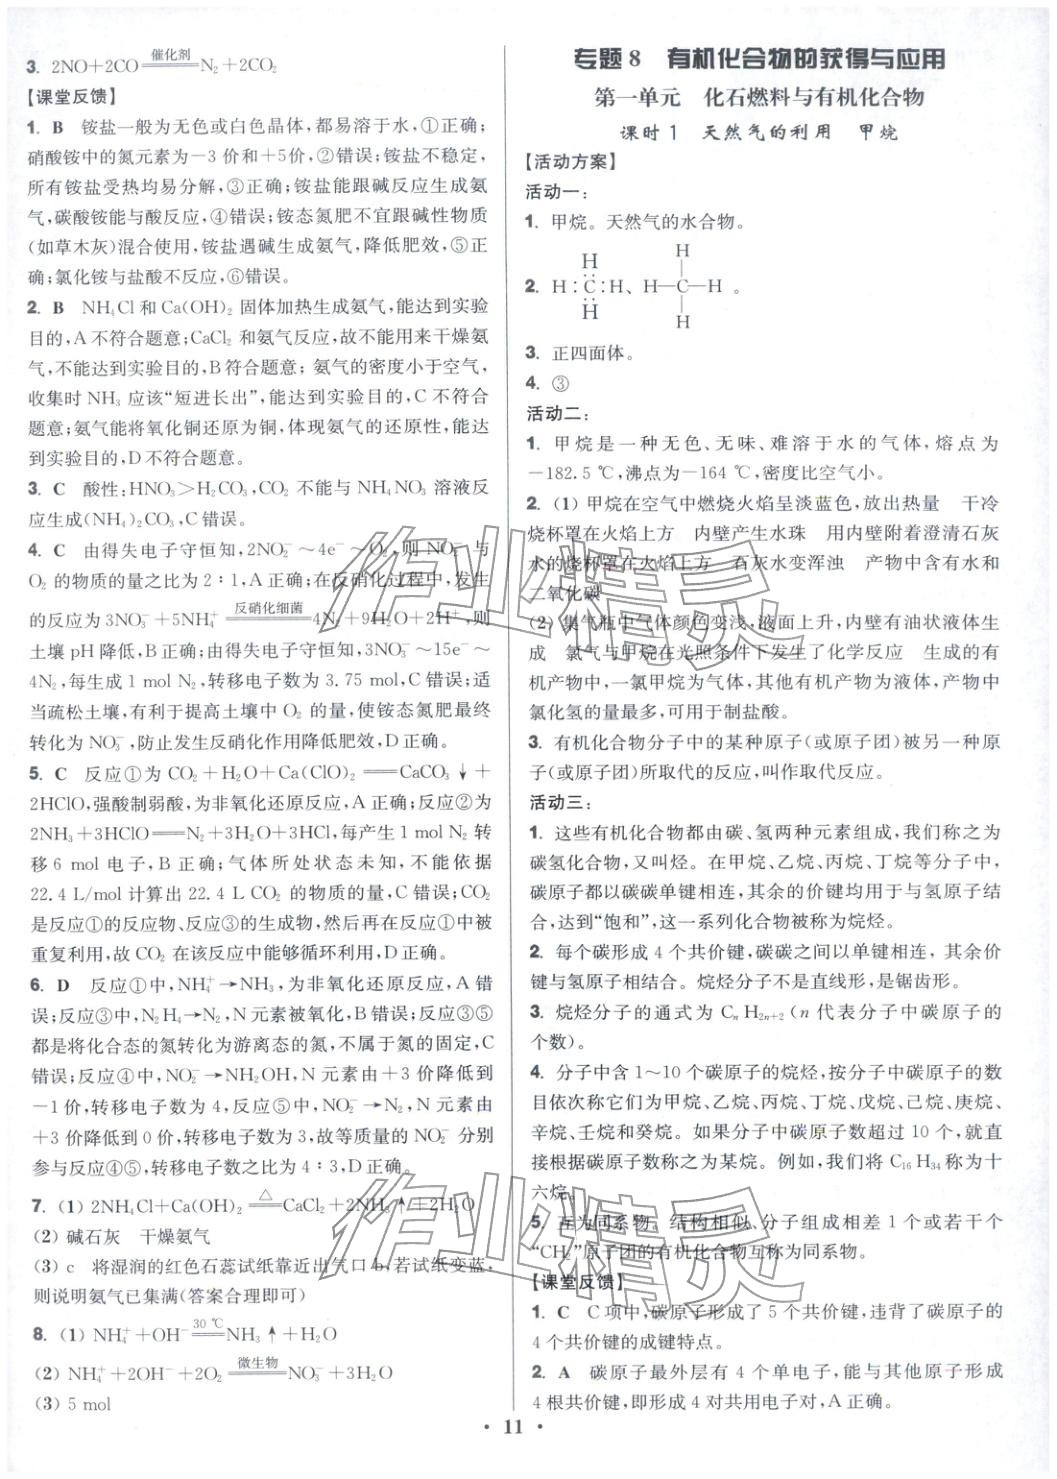 3. 2NO+2CO ══催化剂══ N₂+2CO₂
【课堂反馈】
1. B 铵盐一般为无色或白色晶体,都易溶于水,①正确;
硝酸铵中的氮元素为-3 价和+5价,②错误;铵盐不稳定,
所有铵盐受热均易分解,③正确;铵盐能跟碱反应生成氨
气,碳酸铵能与酸反应,④错误;铵态氮肥不宜跟碱性物质
(如草木灰)混合使用,铵盐遇碱生成氨气,降低肥效,⑤正
确;氯化铵与盐酸不反应,⑥错误。
2. B NH₄Cl 和 Ca(OH)₂ 固体加热生成氨气,能达到实验
目的,A 不符合题意;CaCl₂ 和氨气反应,故不能用来干燥氨
气,不能达到实验目的,B 符合题意;氨气的密度小于空气,
收集时 NH₃ 应该“短进长出”,能达到实验目的,C 不符合
题意;氨气能将氧化铜还原为铜,体现氨气的还原性,能达
到实验目的,D 不符合题意。
3. C 酸性:HNO₃>H₂CO₃,CO₂ 不能与 NH₄NO₃ 溶液反
应生成(NH₄)₂CO₃,C 错误。
4. C 由得失电子守恒知,2NO₂⁻～4e⁻～O₂,则 NO₂⁻ 与
O₂ 的物质的量之比为 2∶1,A 正确;在反硝化过程中,发生
的反应为 3NO₃⁻+5NH₄⁺ ══反硝化细菌══ 4N₂+9H₂O+2H⁺,则
土壤 pH 降低,B 正确;由得失电子守恒知,3NO₃⁻～15e⁻～
4N₂,每生成 1 mol N₂,转移电子数为 3.75 mol,C 错误;适
当疏松土壤,有利于提高土壤中 O₂ 的量,使铵态氮肥最终
转化为 NO₃⁻,防止发生反硝化作用降低肥效,D 正确。
5. C 反应①为 CO₂+H₂O+Ca(ClO)₂══CaCO₃↓+
2HClO,强酸制弱酸,为非氧化还原反应,A 正确;反应②为
2NH₃+3HClO══N₂+3H₂O+3HCl,每产生 1 mol N₂ 转
移 6 mol 电子,B 正确;气体所处状态未知,不能依据
22.4 L/mol 计算出 22.4 L CO₂ 的物质的量,C 错误;CO₂
是反应①的反应物、反应③的生成物,然后再在反应①中被
重复利用,故 CO₂ 在该反应中能够循环利用,D 正确。
6. D 反应①中,NH₄⁺→NH₃,为非氧化还原反应,A 错
误;反应③中,N₂H₄→N₂,N 元素被氧化,B 错误;反应③⑤
都是将化合态的氮转化为游离态的氮,不属于氮的固定,C
错误;反应④中,NO₂⁻→NH₂OH,N 元素由+3 价降低到
-1 价,转移电子数为 4,反应⑤中,NO₂⁻→N₂,N 元素由
+3 价降低到 0 价,转移电子数为 3,故等质量的 NO₂⁻ 分别
参与反应④⑤,转移电子数之比为 4∶3,D 正确。
7. (1) 2NH₄Cl+Ca(OH)₂ ══△══ CaCl₂+2NH₃↑+2H₂O
(2) 碱石灰 干燥氨气
(3) c 将湿润的红色石蕊试纸靠近出气口 b,若试纸变蓝,
则说明氨气已集满(答案合理即可)
8. (1) NH₄⁺+OH⁻ ══30 ℃══ NH₃↑+H₂O
(2) NH₄⁺+2OH⁻+2O₂ ══微生物══ NO₃⁻+3H₂O
(3) 5 mol
专题 8 有机化合物的获得与应用
第一单元 化石燃料与有机化合物
课时 1 天然气的利用 甲烷
【活动方案】
活动一:
1. 甲烷。天然气的水合物。
H H
2. H∶C∶H、H—C—H 。
H H
3. 正四面体。
4. ③
活动二:
1. 甲烷是一种无色、无味、难溶于水的气体,熔点为
-182.5 ℃,沸点为-164 ℃,密度比空气小。
2. (1) 甲烷在空气中燃烧火焰呈淡蓝色,放出热量 干冷
烧杯罩在火焰上方 内壁产生水珠 用内壁附着澄清石灰
水的烧杯罩在火焰上方 石灰水变浑浊 产物中含有水和
二氧化碳
(2) 集气瓶中气体颜色变浅,液面上升,内壁有油状液体生
成 氯气与甲烷在光照条件下发生了化学反应 生成的有
机产物中,一氯甲烷为气体,其他有机产物为液体,产物中
氯化氢的量最多,可用于制盐酸。
3. 有机化合物分子中的某种原子(或原子团)被另一种原
子(或原子团)所取代的反应,叫作取代反应。
活动三:
1. 这些有机化合物都由碳、氢两种元素组成,我们称之为
碳氢化合物,又叫烃。在甲烷、乙烷、丙烷、丁烷等分子中,
碳原子都以碳碳单键相连,其余的价键均用于与氢原子结
合,达到“饱和”,这一系列化合物被称为烷烃。
2. 每个碳形成 4 个共价键,碳碳之间以单键相连,其余价
键与氢原子相结合。烷烃分子不是直线形,是锯齿形。
3. 烷烃分子的通式为 CₙH₂ₙ₊₂(n 代表分子中碳原子的
个数)。
4. 分子中含 1～10 个碳原子的烷烃,按分子中碳原子的数
目依次称它们为甲烷、乙烷、丙烷、丁烷、戊烷、己烷、庚烷、
辛烷、壬烷和癸烷。如果分子中碳原子数超过 10 个,就直
接根据碳原子数称之为某烷。例如,我们将 C₁₆H₃₄称为十
六烷。
5. 互为同系物。结构相似、分子组成相差 1 个或若干个
“CH₂”原子团的有机化合物互称为同系物。
【课堂反馈】
1. C C 项中,碳原子形成了 5 个共价键,违背了碳原子的
4 个共价键的成键特点。
2. A 碳原子最外层有 4 个单电子,能与其他原子形成
4 根共价键,即形成 4 对共用电子对,A 正确。
作业精灵
作业精灵
• 11 •